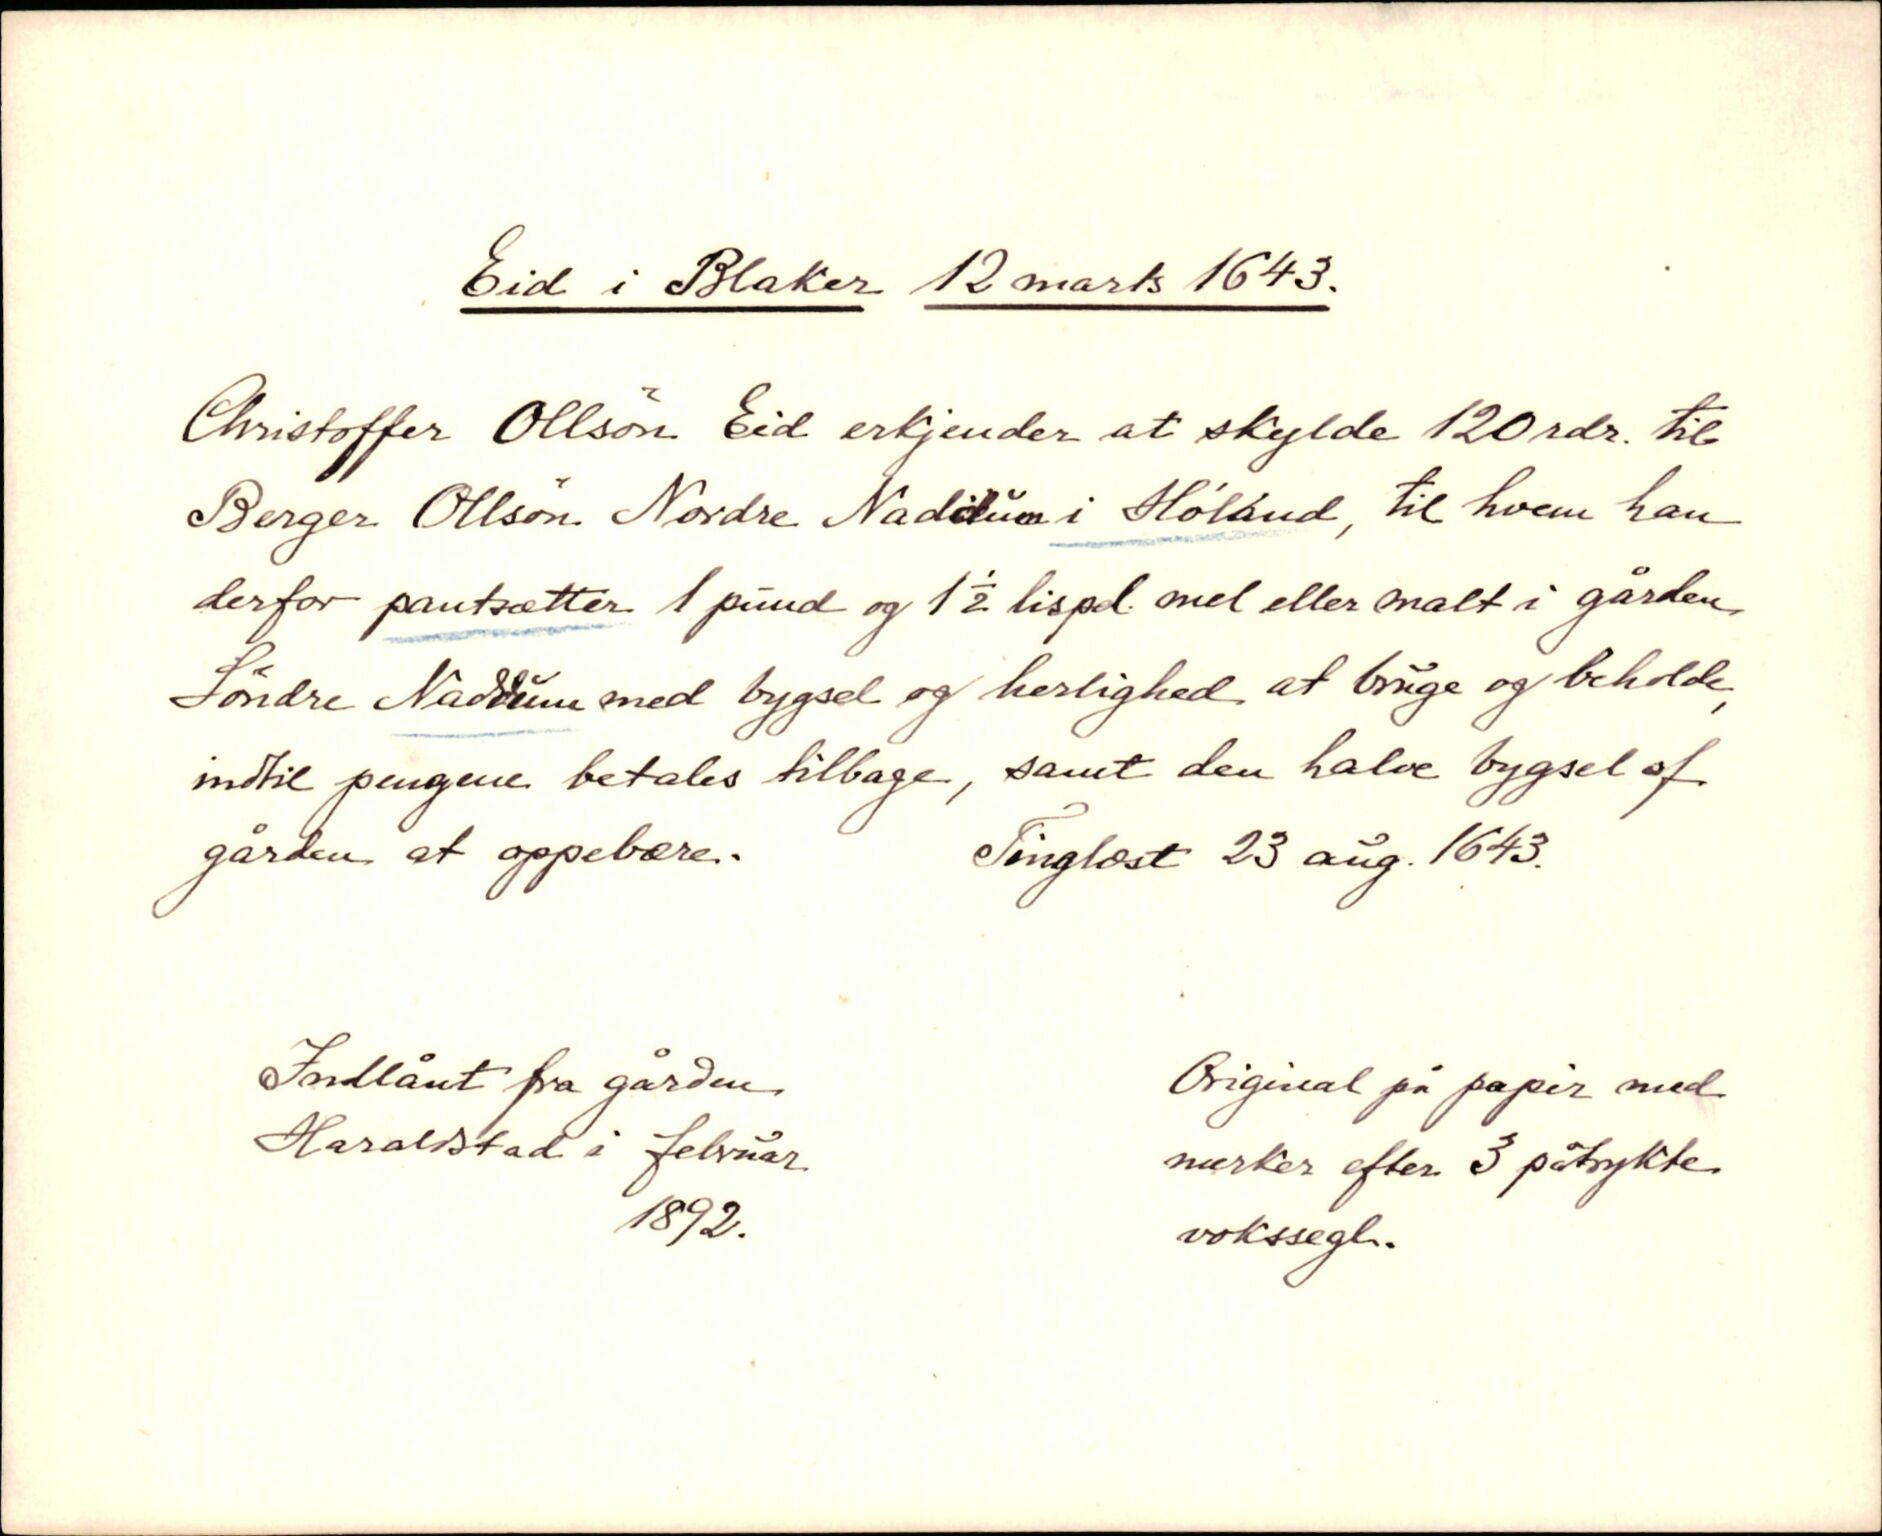 Eid i Blaker 12 marts 1643.
Christoffer Ollsön Eid erkjender at skylde 120 rdr. til
Berger Ollsön Nordre Naddum i Höland, til hvem han
derfor pantsætter 1 pund og 1½ lispd. mel eller malt i gården
Söndre Naddum med bygsel og herlighed at bruge og beholde,
indtil pengene betales tilbage, samt den halve bygsel af
gården at oppebære. Tinglæst 23 aug. 1643.
Indlånt fra gården
Haraldstad i februar
1892.
Original på papir med
merker efter 3 påtrykte
vokssegl.